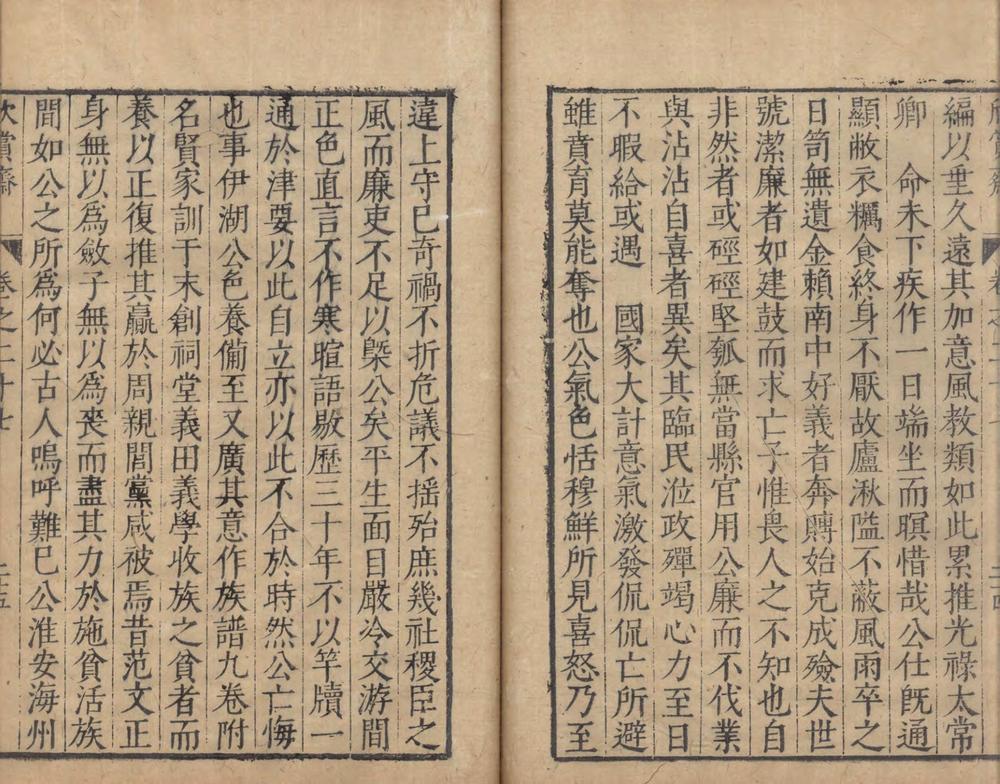 編以垂久遠其加意風教類如此累推光祿太常
卿　命未下疾作一日端坐而暝惜哉公仕旣通
顯敝衣糲食終身不厭故廬湫隘不蔽風雨卒之
日笥無遺金賴南中好義者奔賻始克成殮夫世
號潔廉者如建鼓而求亡子惟畏人之不知也自
非然者或硜硜堅瓠無當縣官用公廉而不伐業
與沾沾自喜者異矣其臨民涖政殫竭心力至日
不暇給或遇　國家大計意氣激發侃侃亡所避
雖賁育莫能奪也公氣色恬穆鮮所見喜怒乃至
違上守已奇禍不折危議不揺殆庶幾社稷臣之
風而廉吏不足以槩公矣平生面目嚴冷交游間
正色直言不作寒暄語敭歷三十年不以竿牘一
通於津要以此自立亦以此不合於時然公亡悔
也事伊湖公色養僃至又廣其意作族譜九卷附
名賢家訓于末創祠堂義田義學收族之貧者而
養以正復推其贏於周親閭黨咸被焉昔范文正
身無以爲斂子無以爲喪而盡其力於施貧活族
間如公之所爲何必古人嗚呼難已公淮安海州
卷之二十七